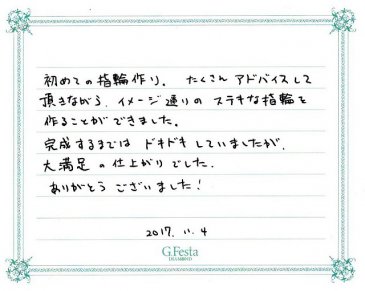 初めての指輪作り、たくさんアドバイスして
頂きながら、イメージ通りのステキな指輪を
作ることができました。
完成するまではドキドキしていましたが、
大満足の仕上がりでした。
ありがとうございました!
2017. 11. 4
G.Festa
DIAMOND